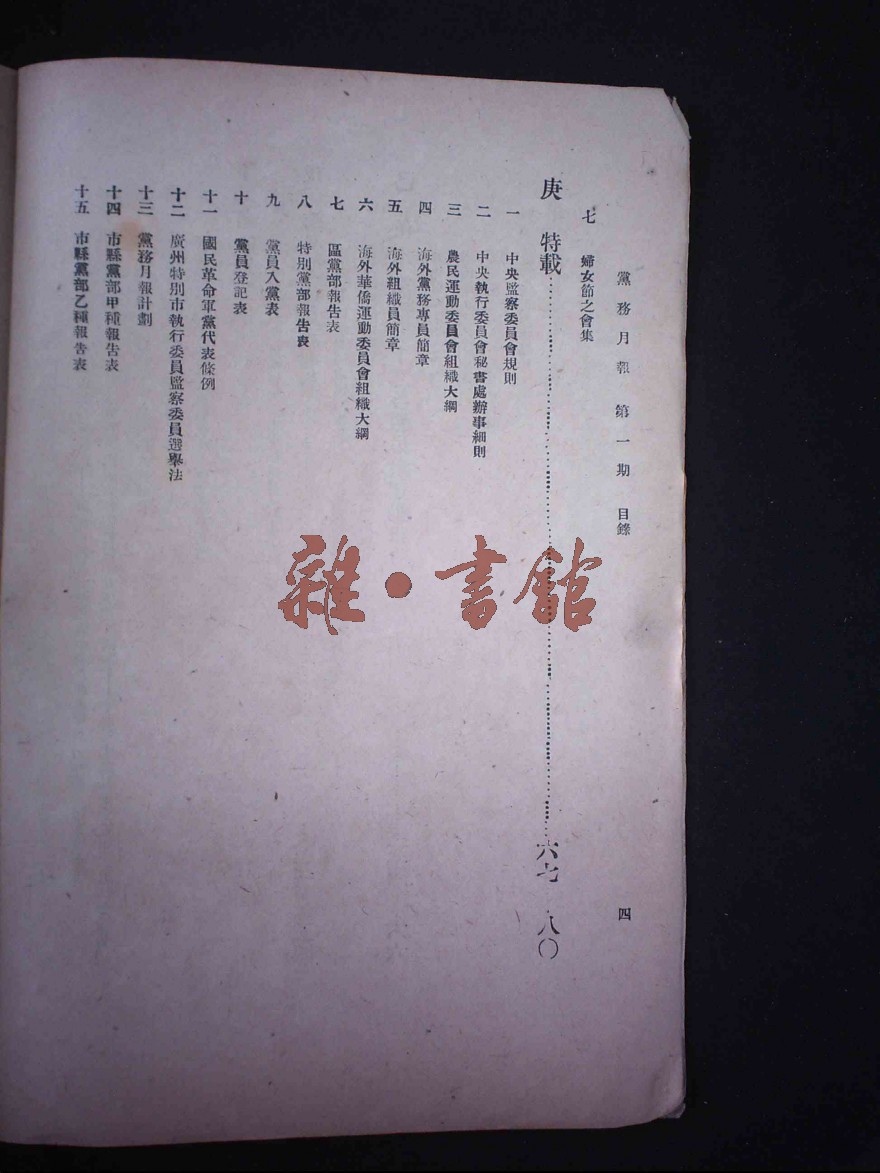 黨務月報 第一期 目錄 四
七 婦女節之會集
庚 特載……六七 八〇
一 中央監察委員會規則
二 中央執行委員會秘書處辦事細則
三 農民運動委員會組織大綱
四 海外黨務專員簡章
五 海外組織員簡章
六 海外華僑運動委員會組織大綱
七 區黨部報告表
八 特別黨部報告表
九 黨員入黨表
十 黨員登記表
十一 國民革命軍黨代表條例
十二 廣州特別市執行委員監察委員選舉法
十三 黨務月報計劃
十四 市縣黨部甲種報告表
十五 市縣黨部乙種報告表
雜·書館